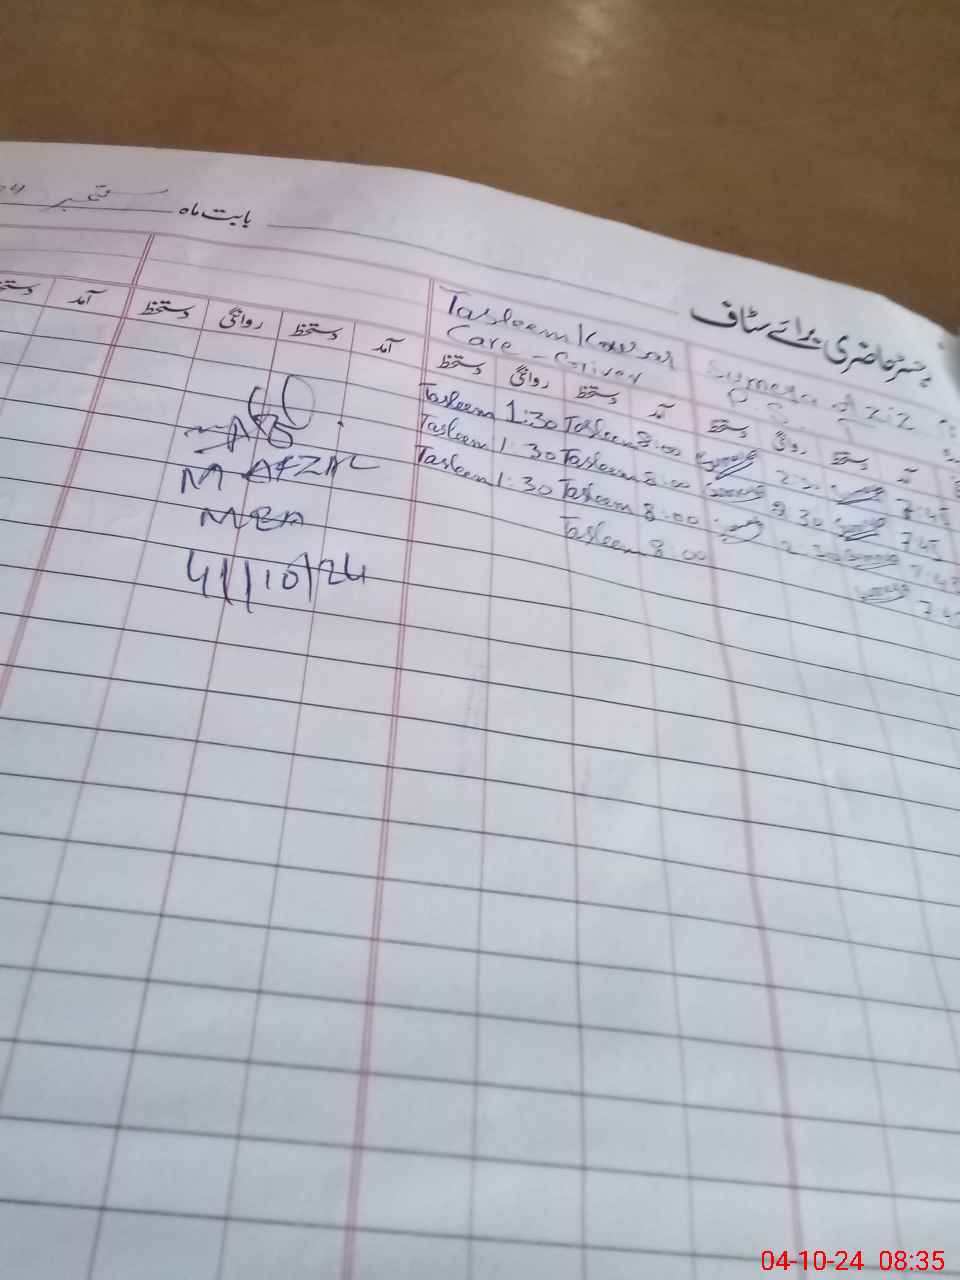 رجسٹر حاضری برائے سٹاف
بابت ماہ ستمبر
Tasleem Kousar
Care - Giver
Sumera Aziz
آمد دستخط روانگی دستخط
آمد دستخط روانگی دستخط
آمد دستخط روانگی دستخط
آمد
Tasleem 1:30 Tasleem 8:00 2:30 7:45
Tasleem 1:30 Tasleem 8:00 2:30 7:45
Tasleem 1:30 Tasleem 8:00 2:30 7:45
Tasleem 8:00
M AFZAL
MEA
4/10/24
04-10-24 08:35